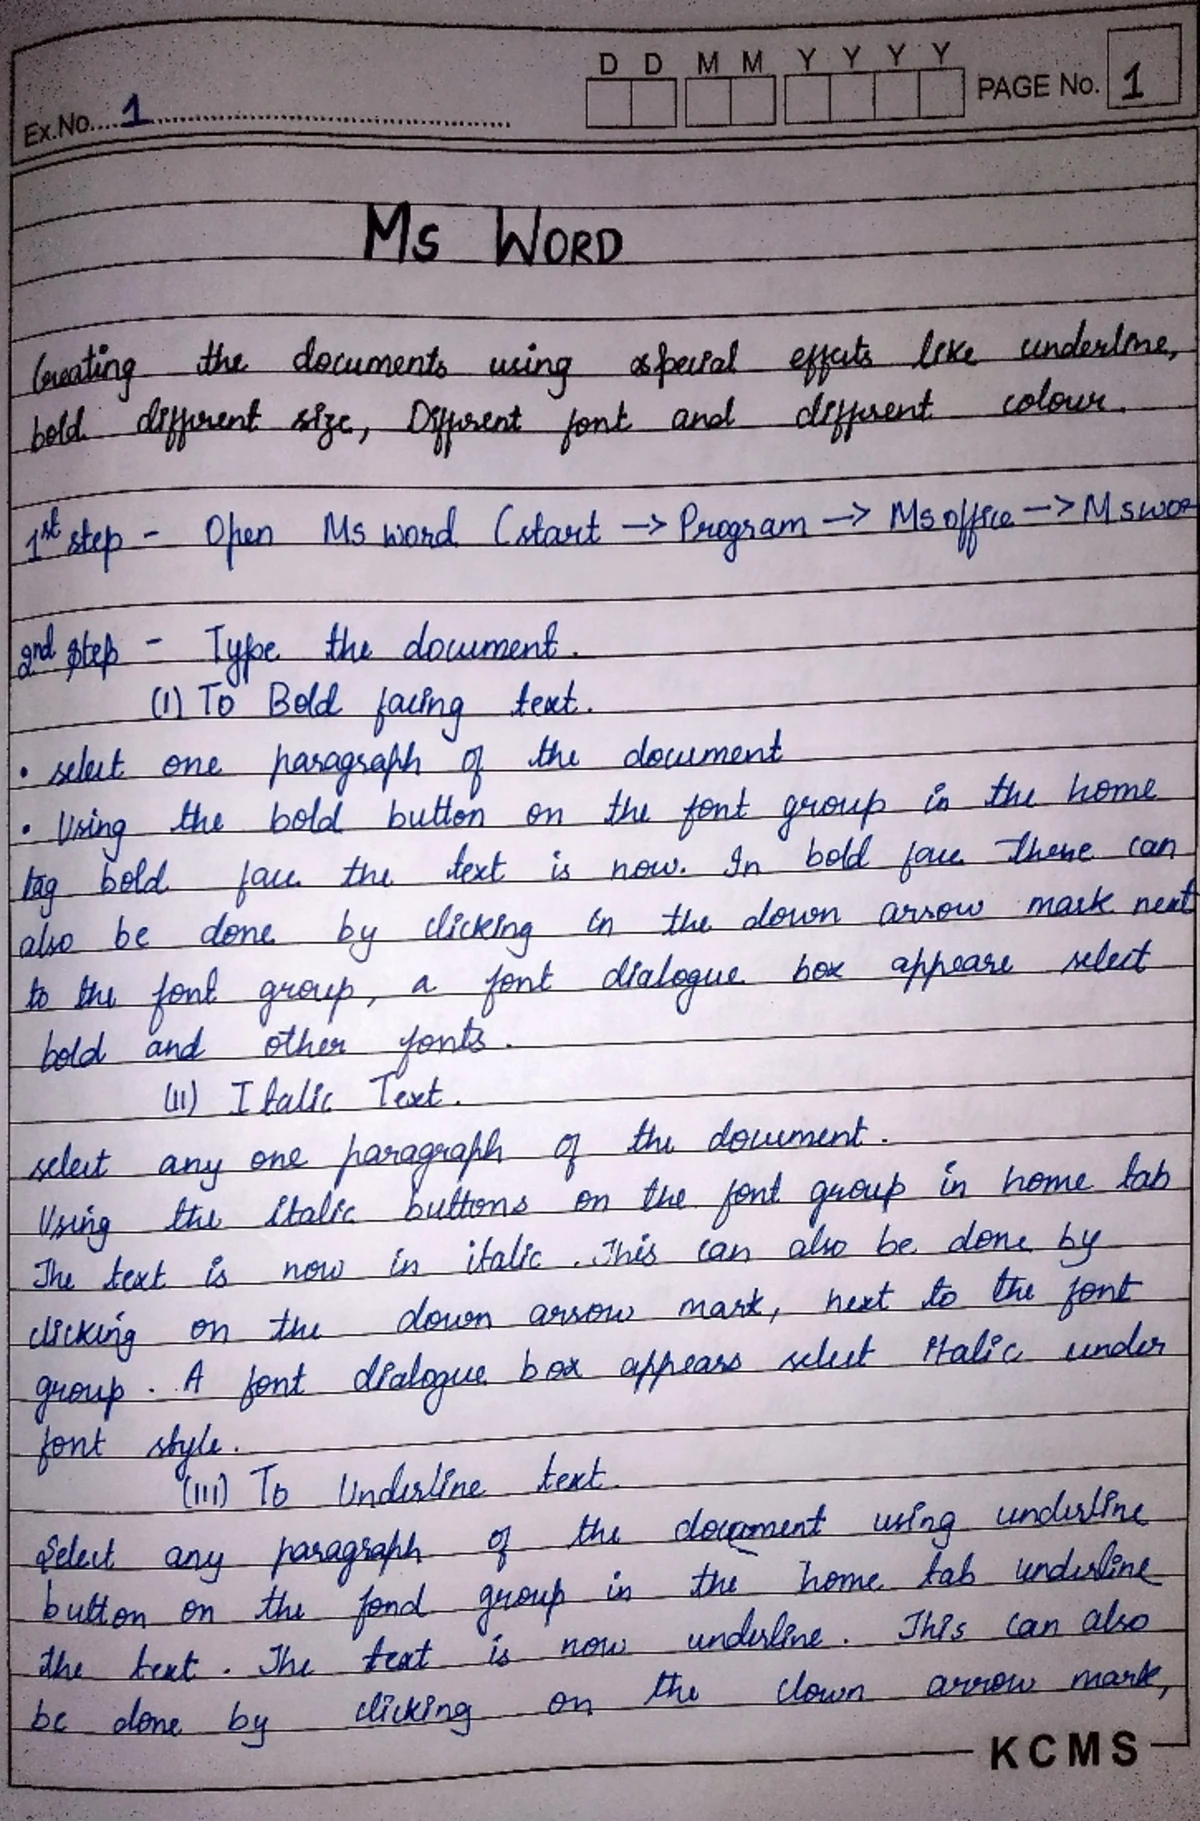 D D M M Y Y Y Y
Ex.No. 1 PAGE No. 1
Ms WORD
Creating the documents using special effects like underline,
bold different size, Different font and different colour.
1st step - Open Ms word (start -> Program -> Ms office -> Ms wor
2nd step - Type the document.
(I) To Bold facing text.
• select one paragraph of the document
• Using the bold button on the font group in the home
tag bold face the text is now. In bold face These can
also be done by clicking in the down arrow mark next
to the font group, a font dialogue box appeare select
bold and other fonts.
(II) Italic Text.
select any one paragraph of the document.
Using the italic buttons on the font group in home tab
The text is now in italic. This can also be done by
clicking on the down arrow mark, next to the font
group. A font dialogue box appears select italic under
font style.
(III) To Underline text.
Select any paragraph of the document using underline
button on the fond group in the home tab underline
the text. The text is now underline. This can also
be done by clicking on the down arrow mark,
KCMS